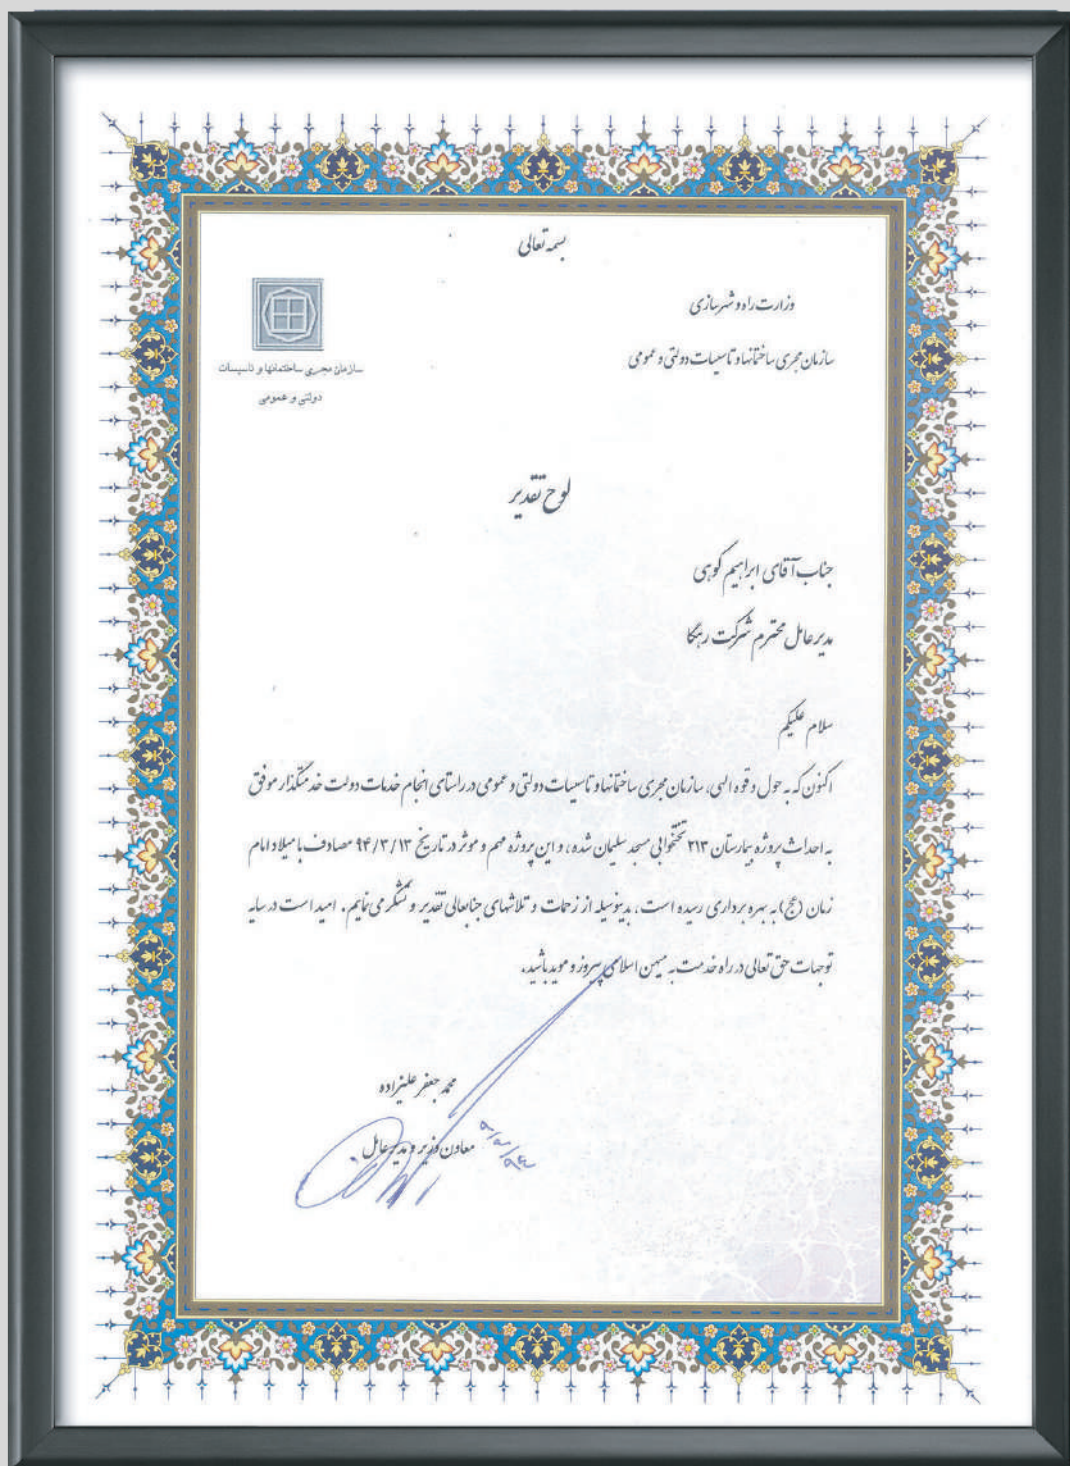 بسمه تعالی
وزارت راه و شهرسازی
سازمان مجری ساختمانها و تاسیسات دولتی و عمومی
سازمان مجری ساختمانها و تاسیسات
دولتی و عمومی
لوح تقدیر
جناب آقای ابراهیم کوهی
مدیرعامل محترم شرکت رهگا
سلام علیکم
اکنون که به حول و قوه الهی، سازمان مجری ساختمانها و تاسیسات دولتی و عمومی در راستای انجام خدمات دولت خدمتگذار موفق
به احداث پروژه بیمارستان ۲۱۳ تختخوابی مسجد سلیمان شده، و این پروژه مهم و موثر در تاریخ ۹۴/۳/۱۳ مصادف با میلاد امام
زمان (عج) به بهره برداری رسیده است، بدینوسیله از زحمات و تلاشهای جنابعالی تقدیر و تشکر می نمایم. امید است در سایه
توجهات حق تعالی در راه خدمت به میهن اسلامی پیروز و موید باشید.
محمد جعفر علیزاده
معاون وزیر و مدیرعامل